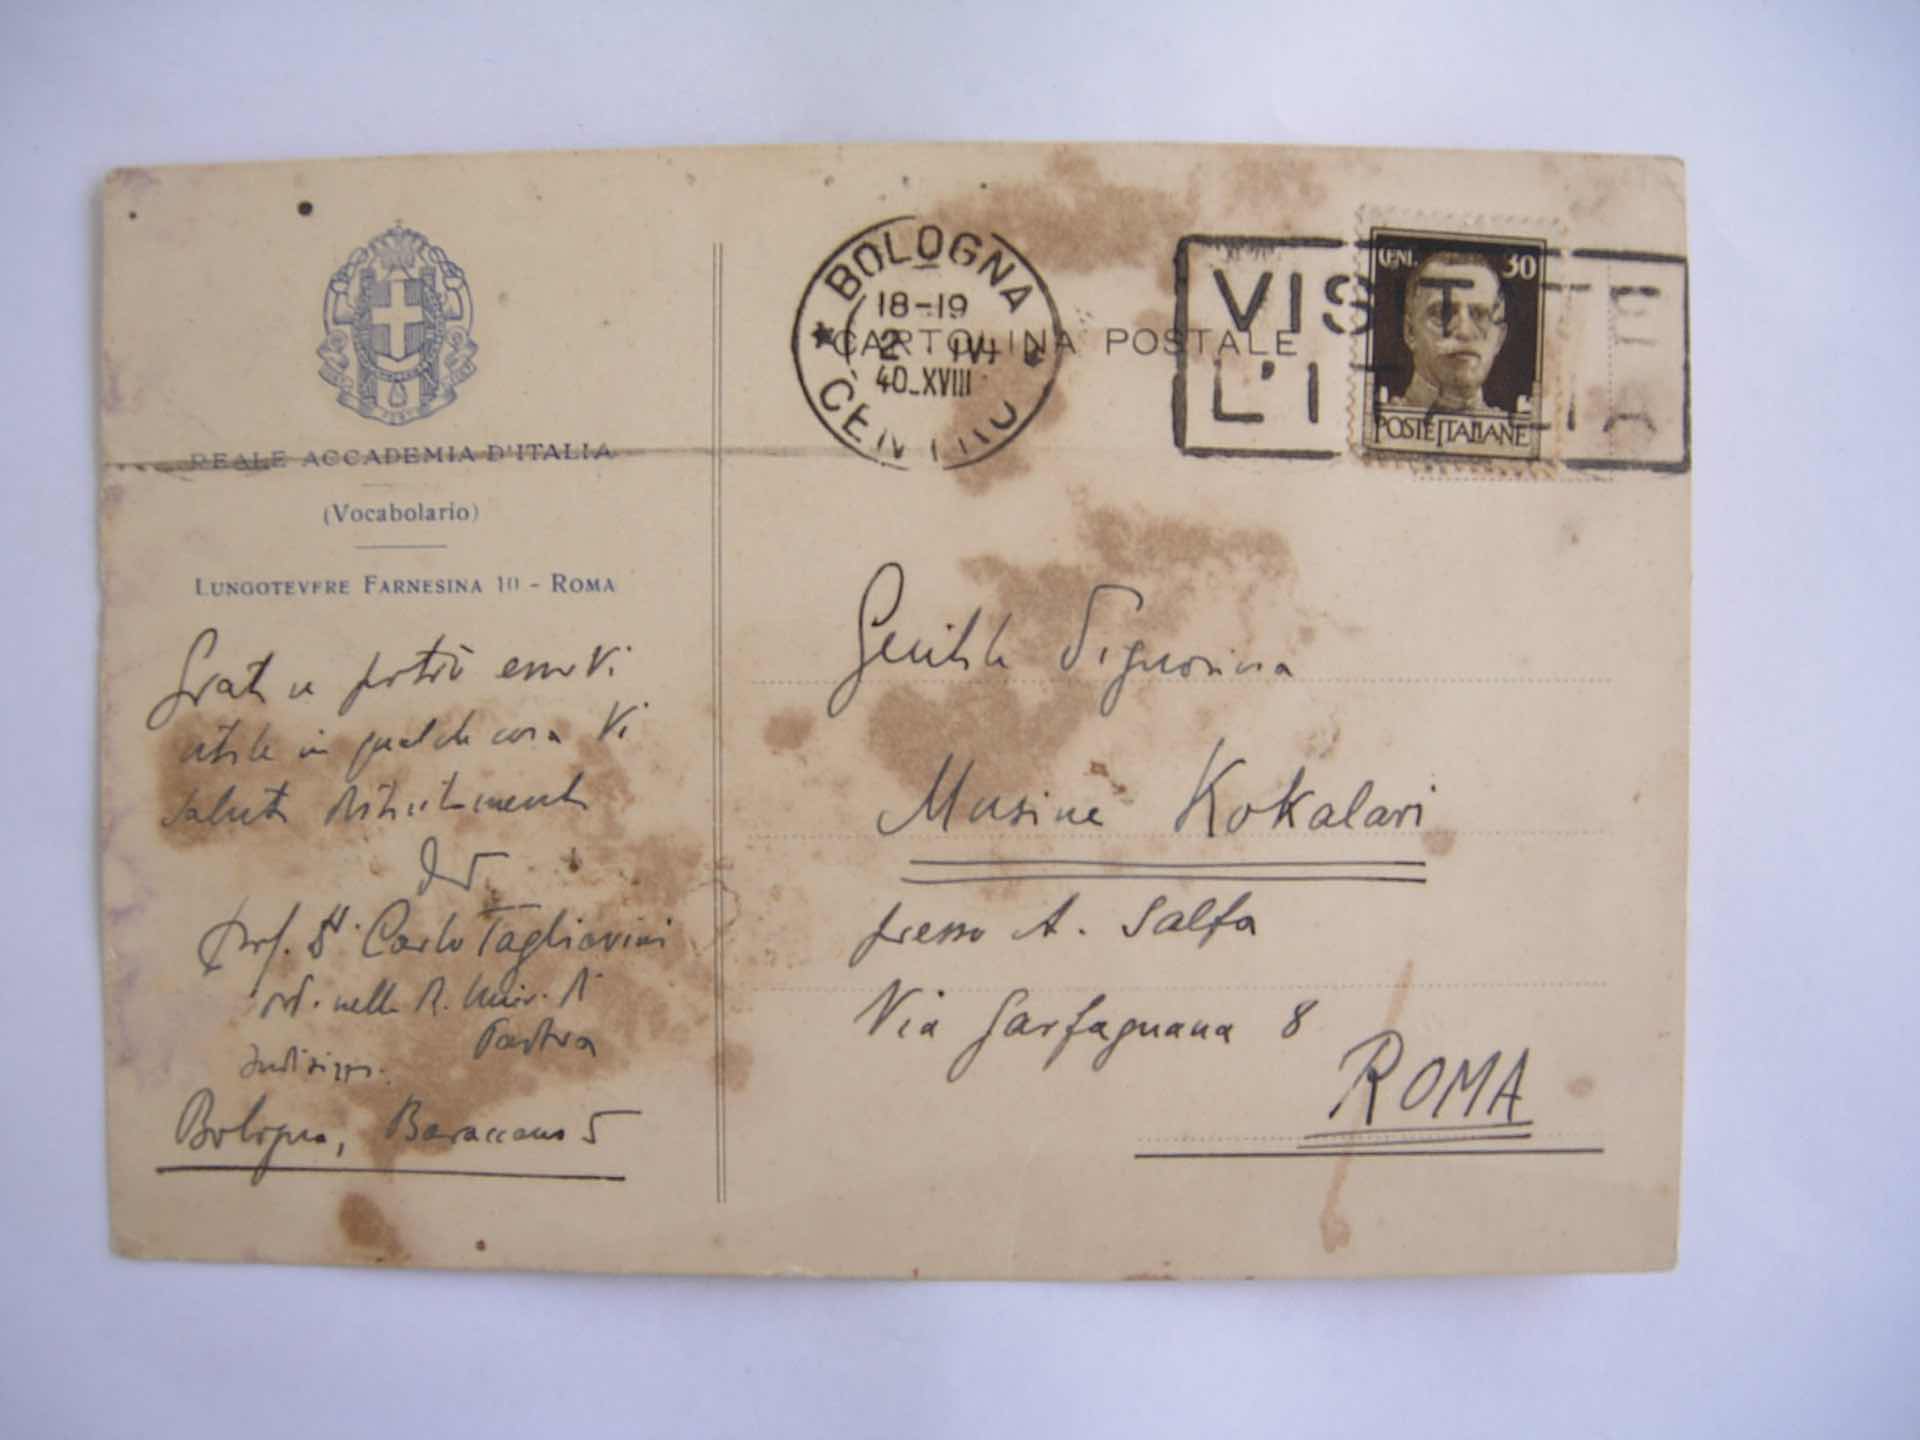 REALE ACCADEMIA D'ITALIA
(Vocabolario)
LUNGOTEVERE FARNESINA 10 - ROMA
potrò esserVi
utile in qualche cosa Vi
saluta distintamente
prof. Dr. Carlo Tagliavini
ord. nella R. Univ. di
Padova
Indirizzo:
Bologna, Baraccano 5
BOLOGNA
18-19
2 IV
40-XVIII
CENTRO
CARTOLINA POSTALE
VISITATE
L'ITALIA
CENT. 30
POSTE ITALIANE
Gentile Signorina
Musine Kokalari
presso A. Salfa
Via Garfagnana 8
ROMA